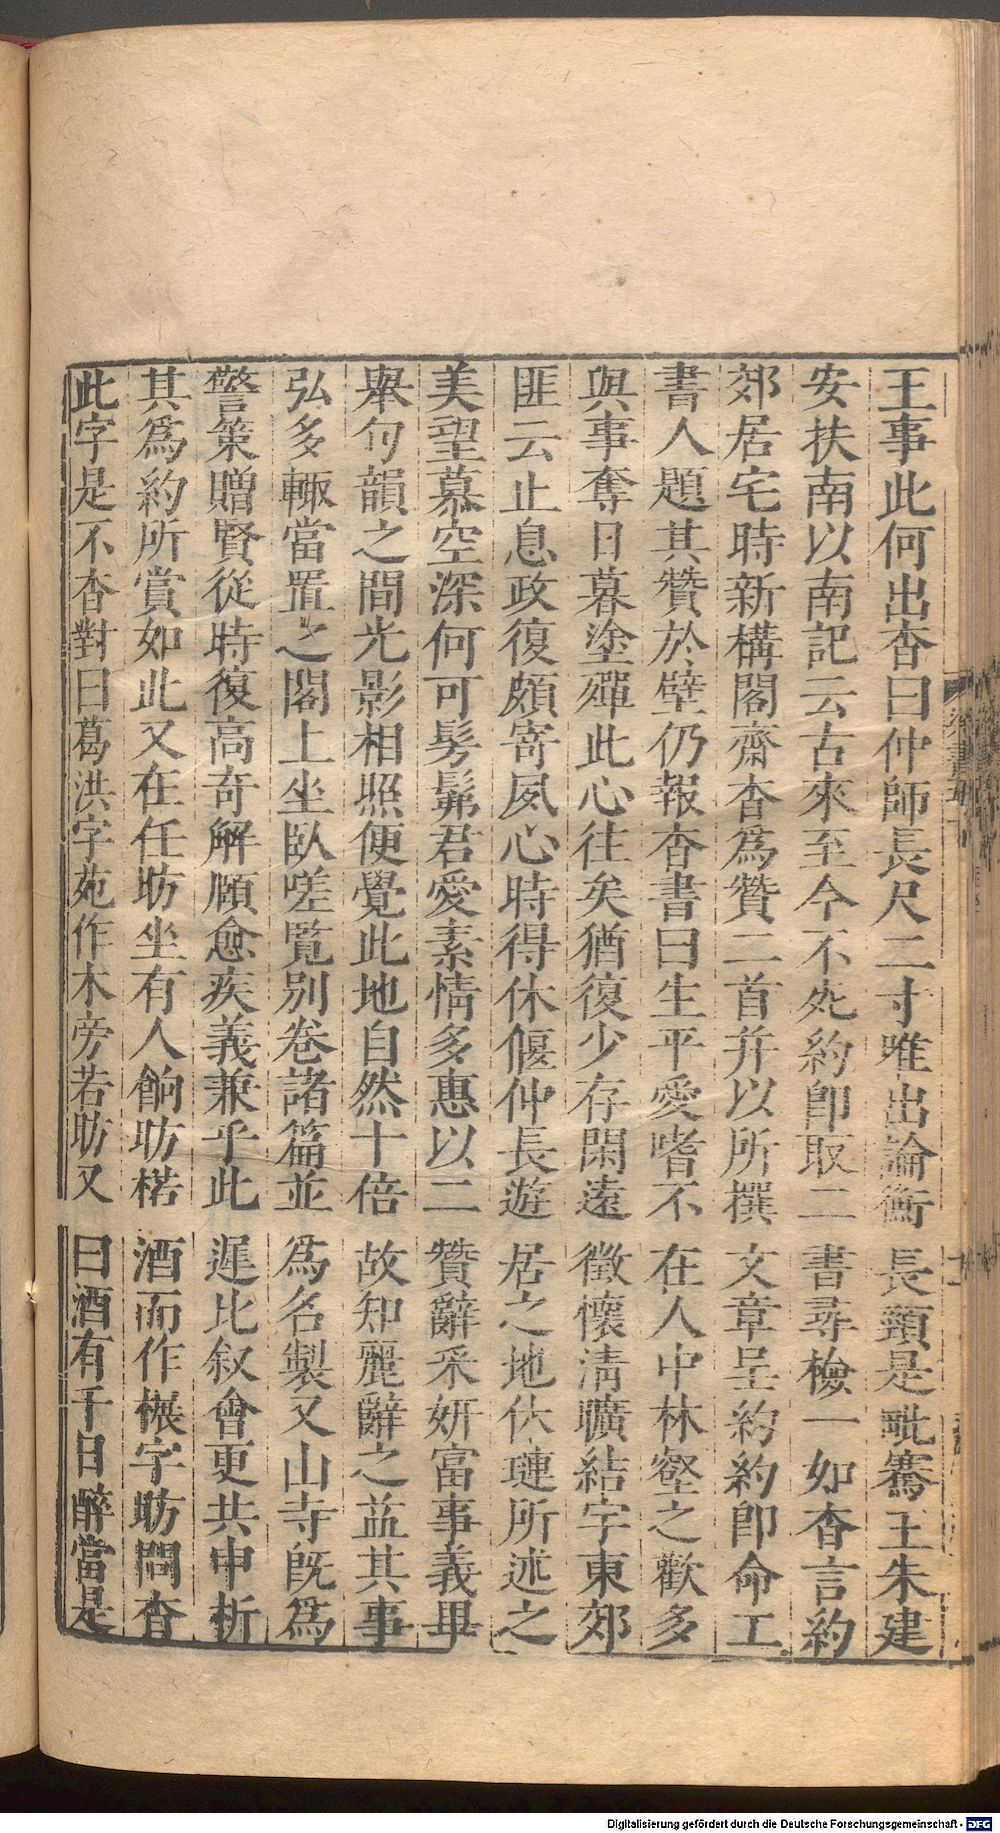 王事此何出杳曰仲師長尺二寸唯出論衡長頸是毗騫王朱建
安扶南以南記云古來至今不死約即取二書尋檢一如杳言約
郊居宅時新構閣齋杳爲贊二首并以所撰文章呈約約即命工
書人題其贊於壁仍報杳書曰生平愛嗜不在人中林壑之歡多
與事奪日暮塗殫此心往矣猶復少存閑遠徵懷清曠結宇東郊
匪云止息政復頗寄夙心時得休偃仲長遊居之地休璉所述之
美望慕空深何可髣髴君愛素情多惠以二贊辭采妍富事義畢
舉句韻之間光影相照便覺此地自然十倍故知麗辭之益其事
弘多輙當置之閣上坐臥嗟覽別卷諸篇並爲名製又山寺旣爲
警策贈賢從時復高奇解頤愈疾義兼乎此遲比叙會更共申析
其爲約所賞如此又在任昉坐有人餉昉楉酒而作榐字昉問杳
此字是不杳對曰葛洪字苑作木旁若昉又曰酒有千日醉當是
Digitalisierung gefördert durch die Deutsche Forschungsgemeinschaft - DFG